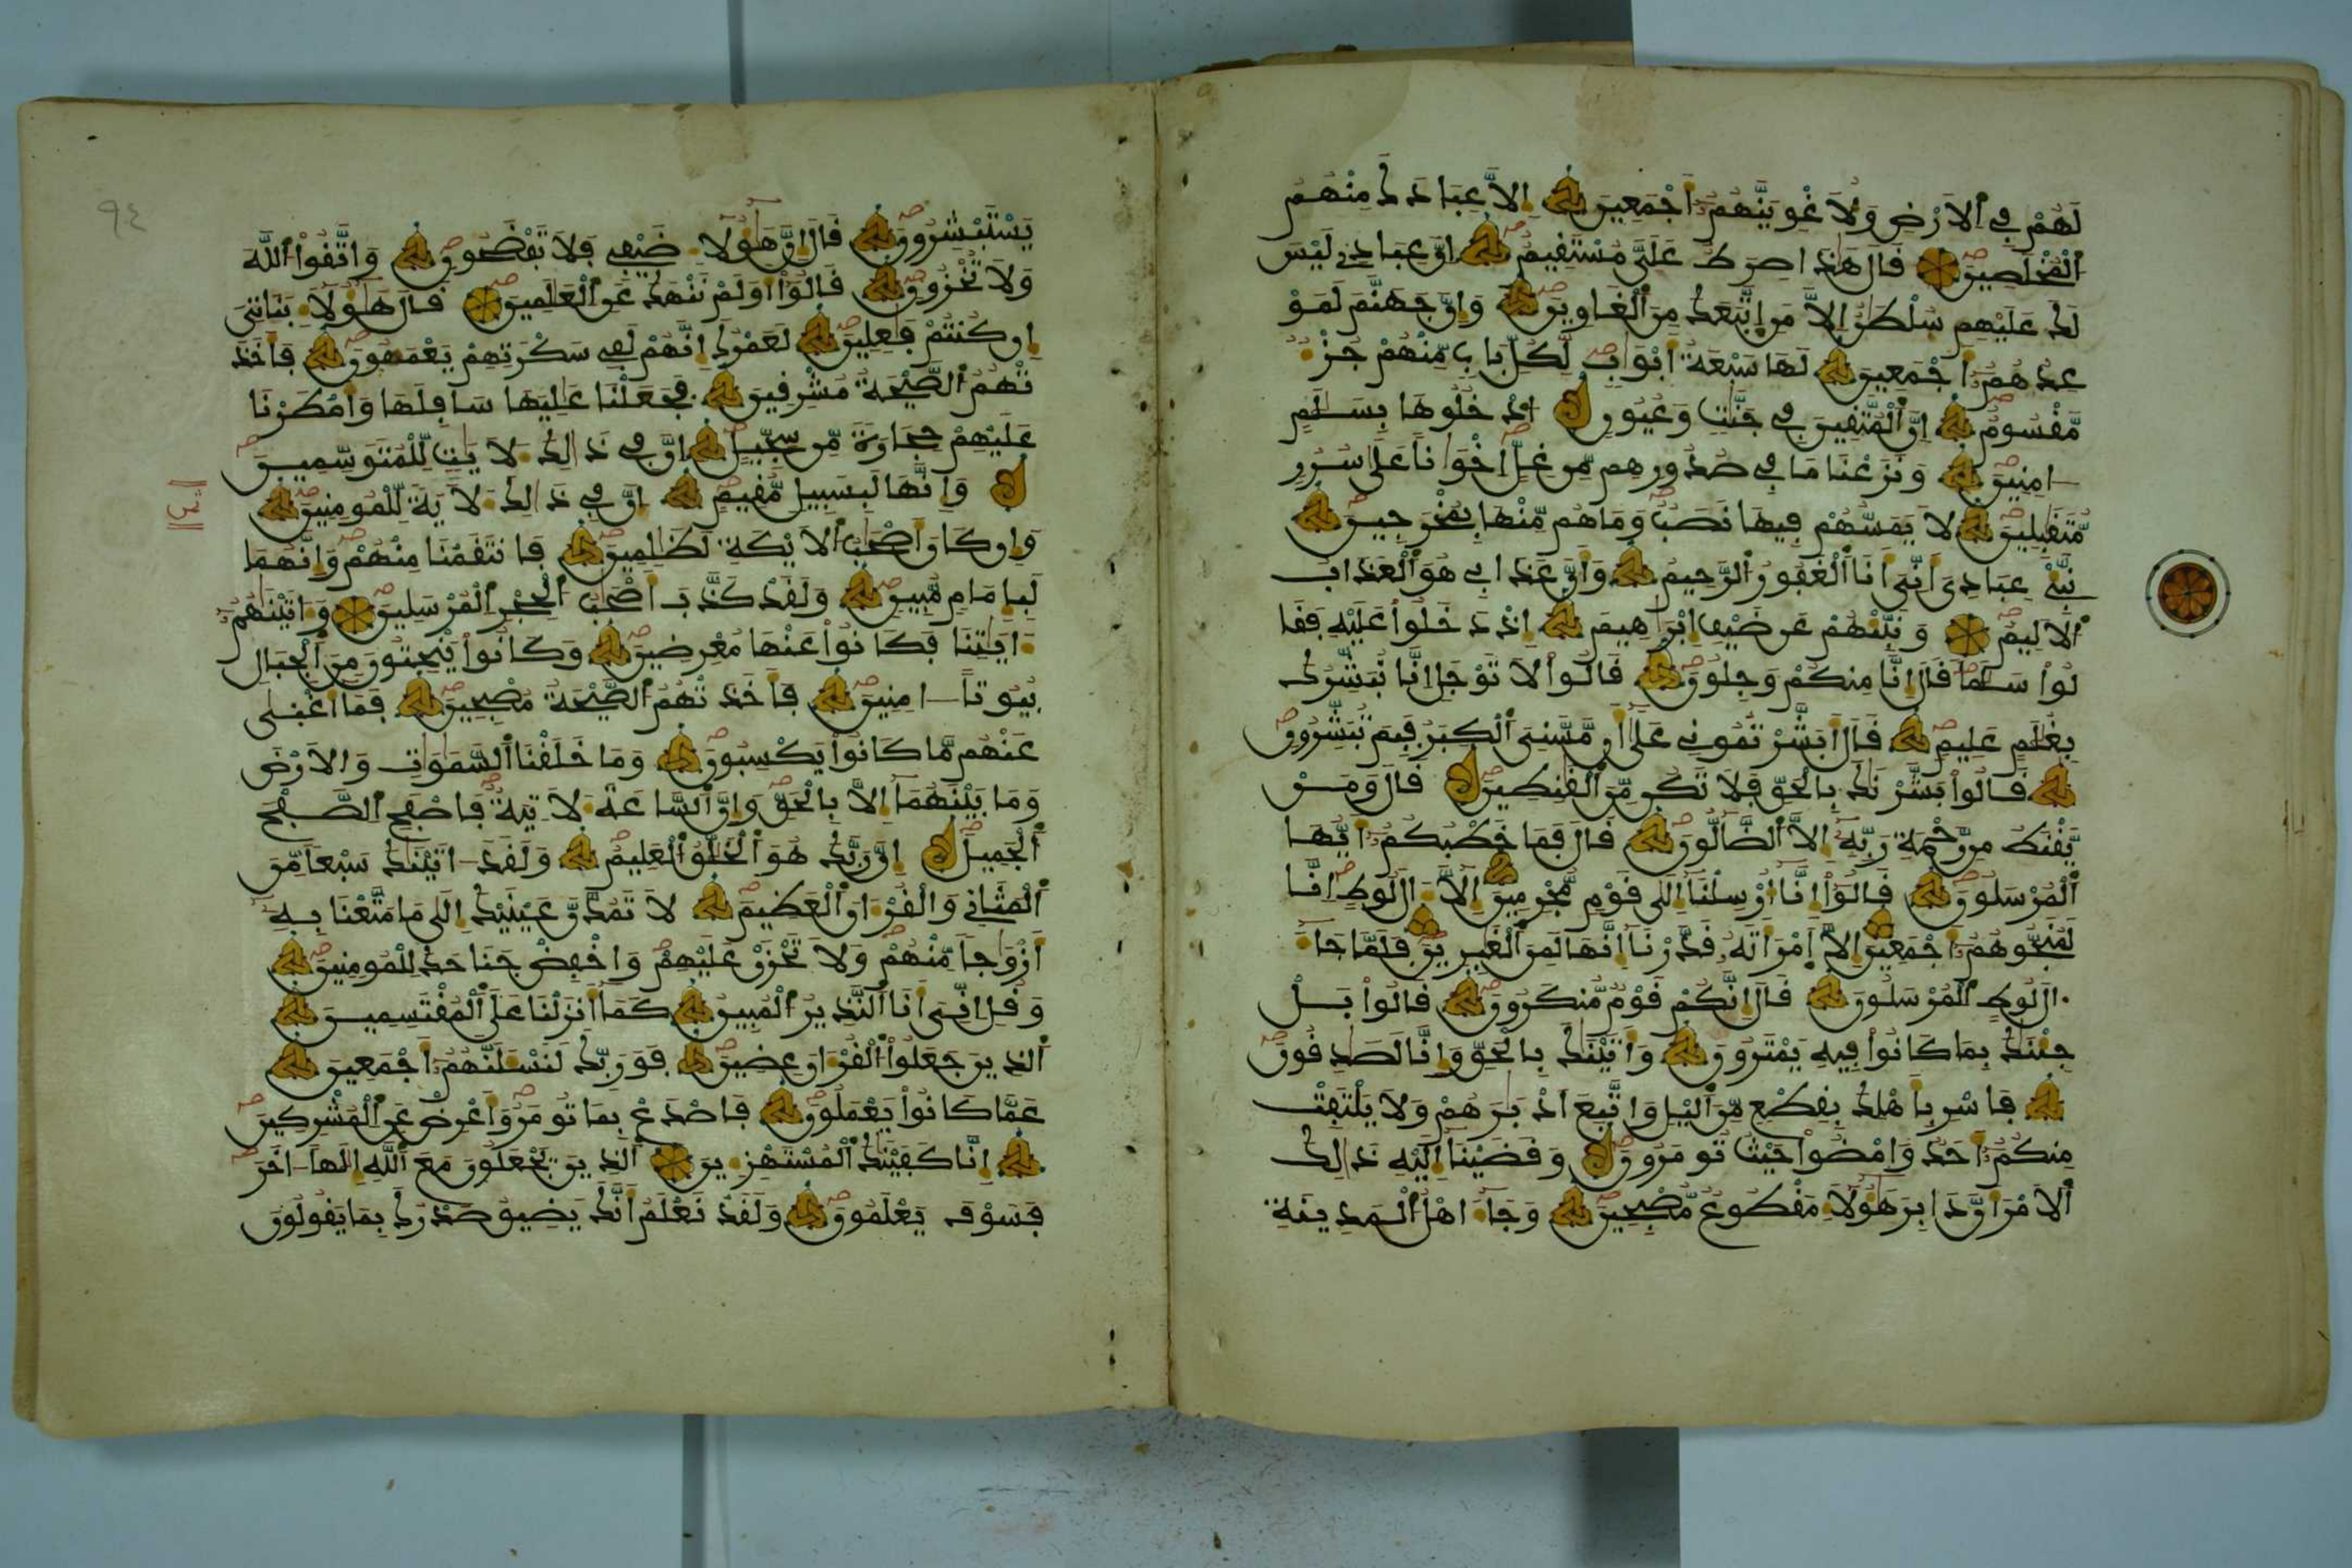 لَهُمْ فِي اَلَارْضِ وَلَأُغْوِيَنَّهُمُۥٓ أَجْمَعِينَ إِلَّا عِبَادَكَ مِنْهُمُ
اُلْمُخْلَصِينَ قَالَ هَٰذَا صِرَٰطٌ عَلَىَّ مُسْتَقِيمٌ إِنَّ عِبَادِے لَيْسَ
لَكَ عَلَيْهِمْ سُلْطَٰنٌ اِلَّا مَنِ اِتَّبَعَكَ مِنَ اَلْغَاوِينَ وَإِنَّ جَهَنَّمَ لَمَوْ
عِدُهُمُۥٓ أَجْمَعِينَ لَهَا سَبْعَةُ أَبْوَٰبٍ لِّكُلِّ بَابٍ مِّنْهُمْ جُزْءٌ
مَّقْسُومٌ إِنَّ اَلْمُتَّقِينَ فِي جَنَّٰتٍ وَعُيُونٍ اُدْخُلُوهَا بِسَلَٰمٍ
ءَامِنِينَ وَنَزَعْنَا مَا فِي صُدُورِهِم مِّنْ غِلٍّ اِخْوَٰنًا عَلَىٰ سُرُرٍ
مُّتَقَٰبِلِينَ لَا يَمَسُّهُمْ فِيهَا نَصَبٌ وَمَا هُم مِّنْهَا بِمُخْرَجِينَ
نَبِّئْ عِبَادِيَ أَنِّيَ أَنَا اَلْغَفُورُ اُلرَّحِيمُ وَأَنَّ عَذَابِي هُوَ اَلْعَذَابُ
اُلَالِيمُ وَنَبِّئْهُمْ عَن ضَيْفِ إِبْرَٰهِيمَ إِذْ دَخَلُوا عَلَيْهِ فَقَا
لُوا سَلَٰمًا قَالَ إِنَّا مِنكُمْ وَجِلُونَ قَالُوا لَا تَوْجَلِ اِنَّا نُبَشِّرُكَ
بِغُلَٰمٍ عَلِيمٍ قَالَ أَبَشَّرْتُمُونِي عَلَىٰ أَن مَّسَّنِيَ اَلْكِبَرُ فَبِمَ تُبَشِّرُونِ
قَالُوا بَشَّرْنَٰكَ بِالْحَقِّ فَلَا تَكُن مِّنَ اَلْقَٰنِطِينَ قَالَ وَمَنْ
يَّقْنَطُ مِن رَّحْمَةِ رَبِّهِۦٓ إِلَّا اَلضَّآلُّونَ قَالَ فَمَا خَطْبُكُمُۥٓ أَيُّهَا
اَلْمُرْسَلُونَ قَالُوٓا إِنَّا أُرْسِلْنَا إِلَىٰ قَوْمٍ مُّجْرِمِينَ إِلَّا ءَالَ لُوطٍ اِنَّا
لَمُنَجُّوهُمُۥٓ أَجْمَعِينَ إِلَّا اَمْرَأَتَهُۥ قَدَّرْنَا إِنَّهَا لَمِنَ اَلْغَٰبِرِينَ فَلَمَّا جَاءَ
ءَالَ لُوطٍ اِلْمُرْسَلُونَ قَالَ إِنَّكُمْ قَوْمٌ مُّنكَرُونَ قَالُوا بَلْ
جِئْنَٰكَ بِمَا كَانُوا فِيهِ يَمْتَرُونَ وَأَتَيْنَٰكَ بِالْحَقِّ وَإِنَّا لَصَٰدِقُونَ
فَاسْرِ بِأَهْلِكَ بِقِطْعٍ مِّنَ اَليْلِ وَاتَّبِعَ اَدْبَٰرَهُمْ وَلَا يَلْتَفِتْ
مِنكُمُۥٓ أَحَدٌ وَامْضُوا حَيْثُ تُومَرُونَ وَقَضَيْنَا إِلَيْهِ ذَٰلِكَ
اَلَامْرَ أَنَّ دَابِرَ هَٰؤُلَاءِ مَقْطُوعٌ مُّصْبِحِينَ وَجَاءَ اهْلُ اُلْمَدِينَةِ
٩٤
يَسْتَبْشِرُونَ قَالَ إِنَّ هَٰؤُلَاءِ ضَيْفِي فَلَا تَفْضَحُونِ وَاتَّقُوا اُللَّهَ
وَلَا تُخْزُونِ قَالُوٓا أَوَلَمْ نَنْهَكَ عَنِ اِلْعَٰلَمِينَ قَالَ هَٰؤُلَاءِ بَنَاتِيَ
إِن كُنتُمْ فَٰعِلِينَ لَعَمْرُكَ إِنَّهُمْ لَفِي سَكْرَتِهِمْ يَعْمَهُونَ فَأَخَذَ
تْهُمُ اُلصَّيْحَةُ مُشْرِقِينَ فَجَعَلْنَا عَٰلِيَهَا سَافِلَهَا وَأَمْطَرْنَا
عَلَيْهِمْ حِجَارَةً مِّن سِجِّيلٍ إِنَّ فِي ذَٰلِكَ لَأٓيَٰتٍ لِّلْمُتَوَسِّمِينَ
وَإِنَّهَا لَبِسَبِيلٍ مُّقِيمٍ إِنَّ فِي ذَٰلِكَ لَأٓيَةً لِّلْمُومِنِينَ
وَإِن كَانَ أَصْحَٰبُ اُلَايْكَةِ لَظَٰلِمِينَ فَانتَقَمْنَا مِنْهُمْ وَإِنَّهُمَا
لَبِإِمَامٍ مُّبِينٍ وَلَقَدْ كَذَّبَ أَصْحَٰبُ اُلْحِجْرِ اِلْمُرْسَلِينَ وَءَاتَيْنَٰهُمُۥٓ
ءَايَٰتِنَا فَكَانُوا عَنْهَا مُعْرِضِينَ وَكَانُوا يَنْحِتُونَ مِنَ اَلْجِبَالِ
بُيُوتًا ءَامِنِينَ فَأَخَذَتْهُمُ اُلصَّيْحَةُ مُصْبِحِينَ فَمَا أَغْنَىٰ
عَنْهُم مَّا كَانُوا يَكْسِبُونَ وَمَا خَلَقْنَا اَلسَّمَٰوَٰتِ وَالَارْضَ
وَمَا بَيْنَهُمَا إِلَّا بِالْحَقِّ وَإِنَّ اَلسَّاعَةَ لَأٓتِيَةٌ فَاصْفَحِ اِلصَّفْحَ
اَلْجَمِيلَ إِنَّ رَبَّكَ هُوَ اَلْخَلَّٰقُ اُلْعَلِيمُ وَلَقَدَ ءَاتَيْنَٰكَ سَبْعًا مِّنَ
اَلْمَثَانِي وَالْقُرْءَانَ اَلْعَظِيمَ لَا تَمُدَّنَّ عَيْنَيْكَ إِلَىٰ مَا مَتَّعْنَا بِهِۦٓ
أَزْوَٰجًا مِّنْهُمْ وَلَا تَحْزَنْ عَلَيْهِمْ وَاخْفِضْ جَنَاحَكَ لِلْمُومِنِينَ
وَقُلِ اِنِّيَ أَنَا اَلنَّذِيرُ اُلْمُبِينُ كَمَا أَنزَلْنَا عَلَى اَلْمُقْتَسِمِينَ
اَلذِينَ جَعَلُوا اُلْقُرْءَانَ عِضِينَ فَوَرَبِّكَ لَنَسْـَٔلَنَّهُمُۥٓ أَجْمَعِينَ
عَمَّا كَانُوا يَعْمَلُونَ فَاصْدَعْ بِمَا تُومَرُ وَأَعْرِضْ عَنِ اِلْمُشْرِكِينَ
إِنَّا كَفَيْنَٰكَ اَلْمُسْتَهْزِءِينَ اَلذِينَ يَجْعَلُونَ مَعَ اَللَّهِ إِلَٰهًا ءَاخَرَ
فَسَوْفَ يَعْلَمُونَ وَلَقَدْ نَعْلَمُ أَنَّكَ يَضِيقُ صَدْرُكَ بِمَا يَقُولُونَ